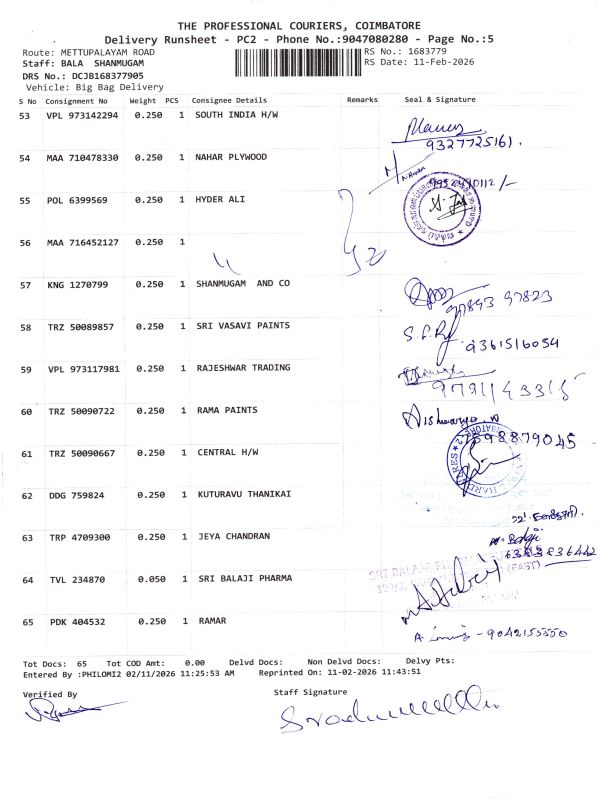 THE PROFESSIONAL COURIERS, COIMBATORE
Delivery Runsheet - PC2 - Phone No.:9047080280 - Page No.:5
Route: METTUPALAYAM ROAD RS No.: 1683779
Staff: BALA SHANMUGAM RS Date: 11-Feb-2026
DRS No.: DCJB168377905
Vehicle: Big Bag Delivery
S No Consignment No Weight PCS Consignee Details Remarks Seal & Signature
53 VPL 973142294 0.250 1 SOUTH INDIA H/W
9327725161.
54 MAA 710478330 0.250 1 NAHAR PLYWOOD
55 POL 6399569 0.250 1 HYDER ALI
56 MAA 716452127 0.250 1
57 KNG 1270799 0.250 1 SHANMUGAM AND CO
97893 97823
58 TRZ 50089857 0.250 1 SRI VASAVI PAINTS
9361516054
59 VPL 973117981 0.250 1 RAJESHWAR TRADING
60 TRZ 50090722 0.250 1 RAMA PAINTS
Aishwarya
61 TRZ 50090667 0.250 1 CENTRAL H/W
62 DDG 759824 0.250 1 KUTURAVU THANIKAI
63 TRP 4709300 0.250 1 JEYA CHANDRAN
64 TVL 234870 0.050 1 SRI BALAJI PHARMA
65 PDK 404532 0.250 1 RAMAR
9042155550
Tot Docs: 65 Tot COD Amt: 0.00 Delvd Docs: Non Delvd Docs: Delvy Pts:
Entered By :PHILOMI2 02/11/2026 11:25:53 AM Reprinted On: 11-02-2026 11:43:51
Verified By Staff Signature